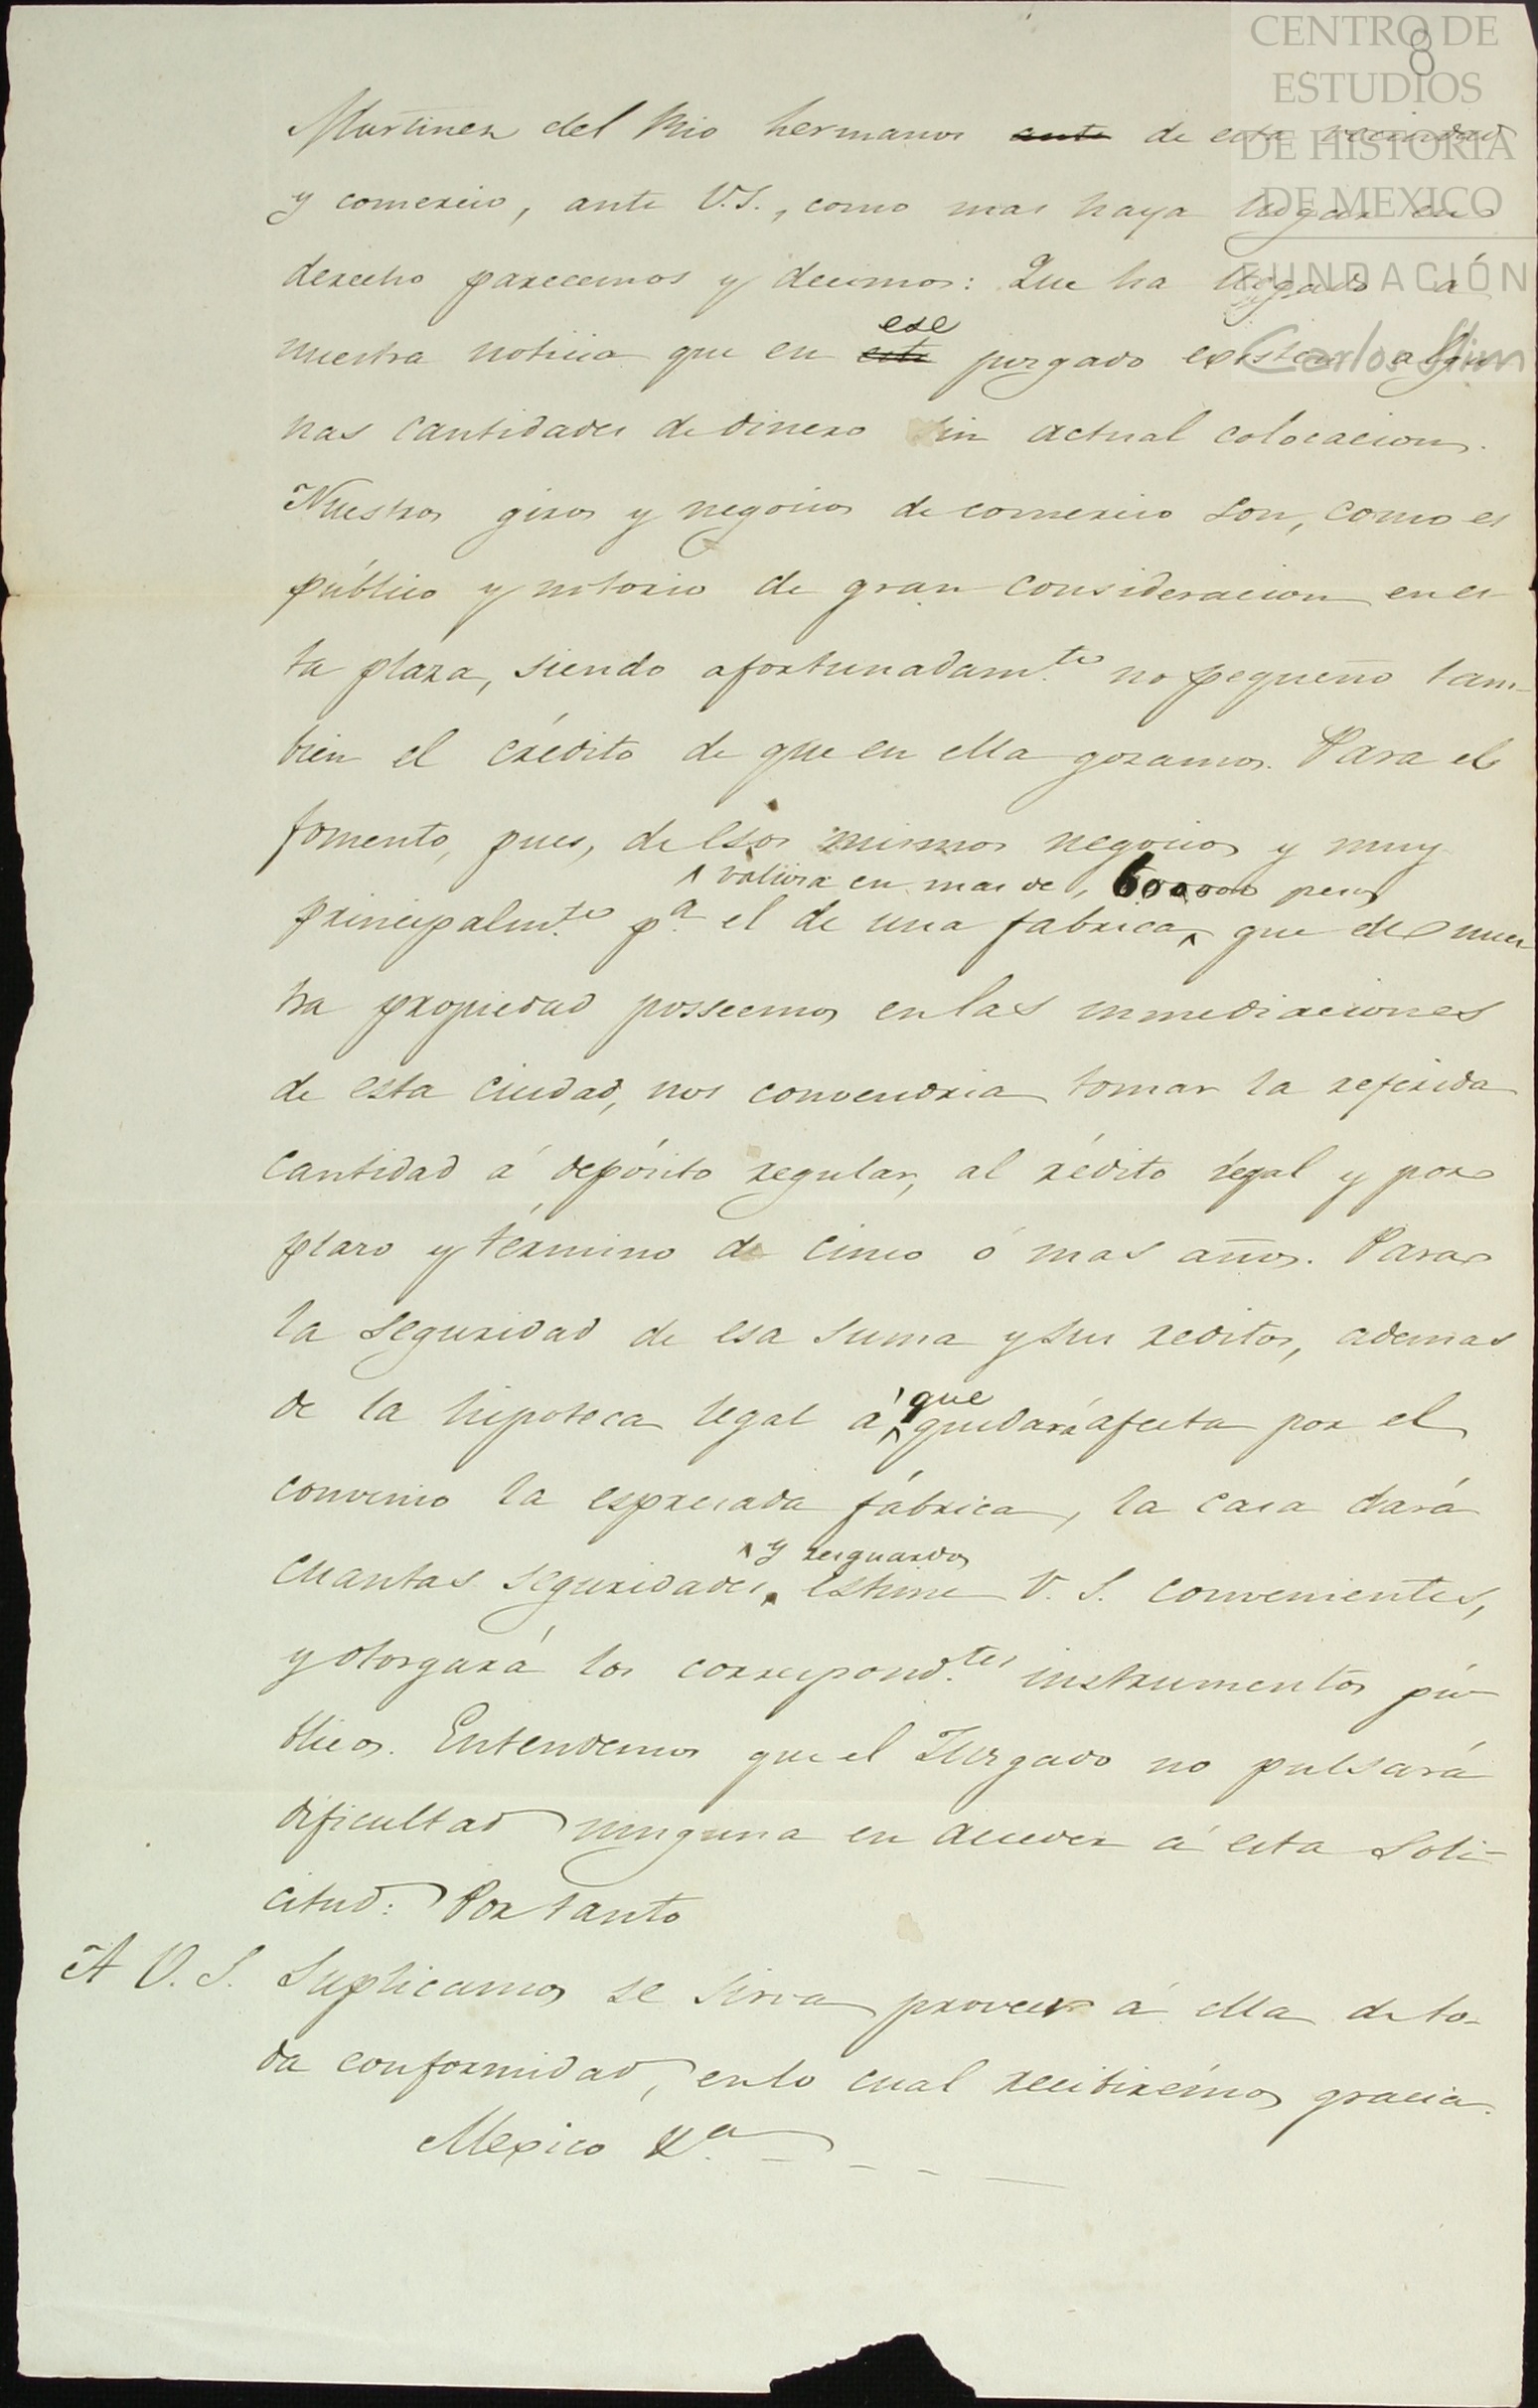 8
CENTRO DE
ESTUDIOS
DE HISTORIA
DE MEXICO
FUNDACIÓN
Carlos Slim
Martinez del Rio hermanos ante de esta vecindad
y comercio, ante V.S., como mas haya lugar en
derecho parecemos y decimos: Que ha llegado á
ese
nuestra noticia que en este juzgado existen algu
nas cantidades de dinero sin actual colocacion.
Nuestros giros y negocios de comercio son, como es
público y notorio de gran consideracion en es
ta plaza, siendo afortunadam.te no pequeño tam-
bien el crédito de que en ella gozamos. Para el
fomento, pues, de esos mismos negocios y muy
valiosa en mas de, 600000 pesos
principalm.te p.a el de una fabrica, que de nues
tra propiedad posseemos en las inmediaciones
de esta ciudad, nos convendria tomar la referida
cantidad á depósito regular, al rédito legal y por
plazo y término de cinco ó mas años. Para
la seguridad de esa suma y sus reditos, ademas
que
de la hipoteca legal á quedará afecta por el
convenio la espresada fábrica, la casa dará
y resguardos
cuantas seguridades, estime V. S. convenientes,
y otorgará los correspond.tes instrumentos pú
blicos. Entendemos que el Juzgado no pulsará
dificultad ninguna en acceder á esta soli-
citud: Por tanto
A V. S. Suplicamos se sirva proveer á ella de to-
da conformidad, en lo cual recibirémos gracia.
Mexico &.a